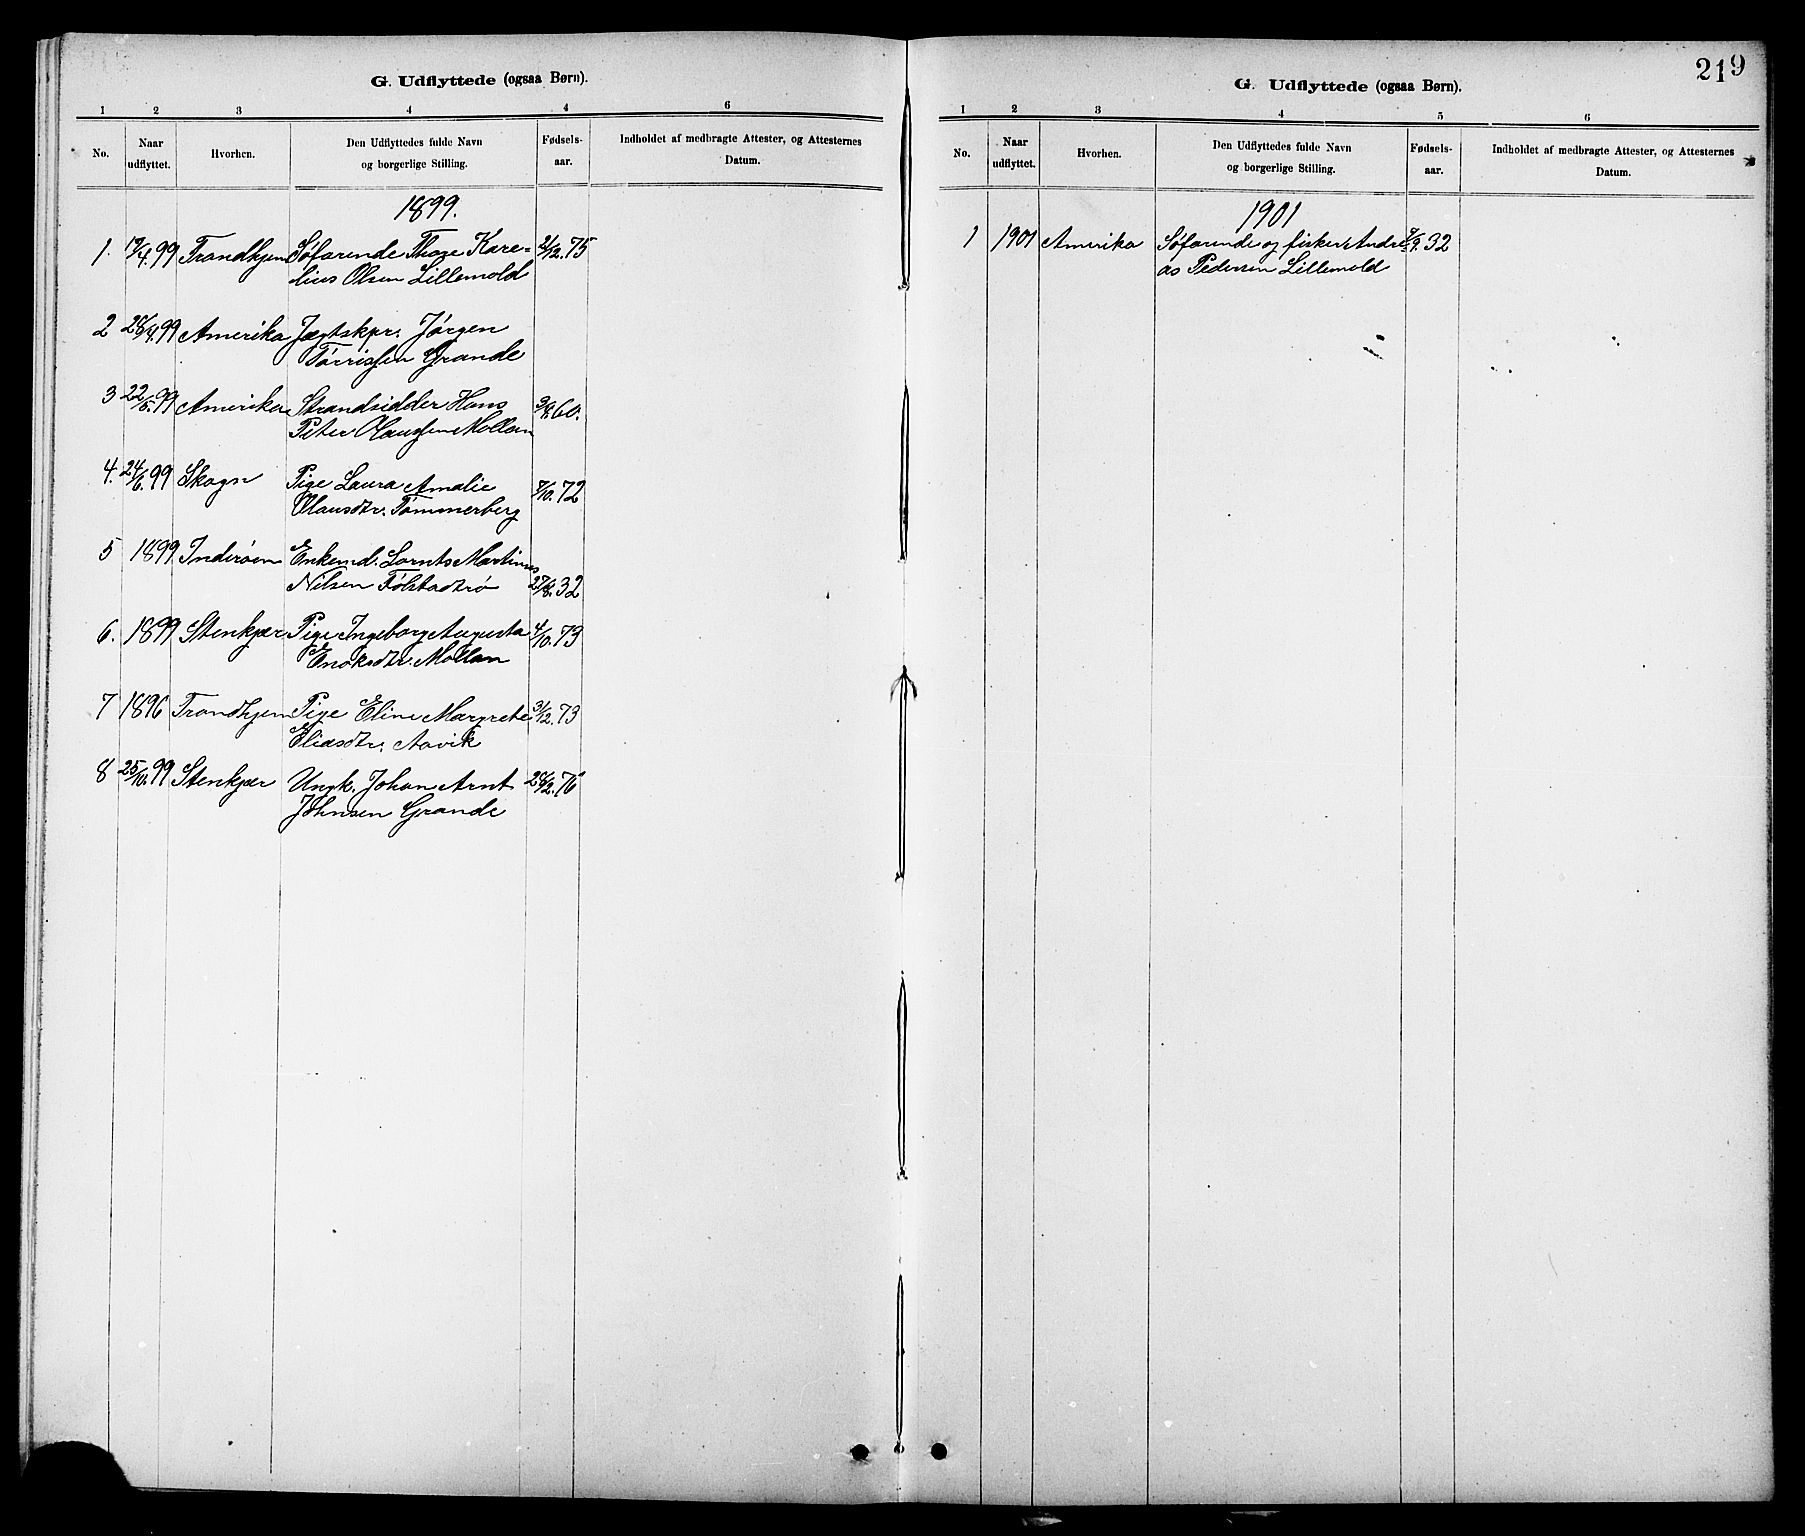 G. Udflyttede (ogsaa Børn).
1 2 3 4 4 6
No. Naar udflyttet. Hvorhen. Den Udflyttedes fulde Navn og borgerlige Stilling. Fødsels-aar. Indholdet af medbragte Attester, og Attesternes Datum.
1899.
1. 19/4.99 Trondhjem Søfarende Thore Kare= 2/12.75
lius Olsen Lillemold
2 28/4.99 Amerika Jægtskpr. Jørgen
Tørrissen Grande
3 22/5.99 Amerika Strandsidder Hans 60.
Peter Olaussen Mollan
4. 24/6.99 Skogn Pige Laura Amalie 7/10.72
Olausdtr. Tømmerberg
5 1899 Inderøen Enkemd. Lornts Martinus
Nilsen Følstadtrø 27/8.32
6. 1899 Stenkjær Pige Ingeborg Augusta 4/10.73
Enoksdtr. Mollan
7 1896 Trondhjem Pige Eline Margrete 31/12.73
Eliasdtr. Aavik
8 25/10.99 Stenkjær Ungk. Johan Arnt 28/2.76
Johnsen Grande
219
G. Udflyttede (ogsaa Børn).
1 2 3 4 5 6
No. Naar udflyttet. Hvorhen. Den Udflyttedes fulde Navn og borgerlige Stilling. Fødsels-aar. Indholdet af medbragte Attester, og Attesternes Datum.
1901
1 1901 Amerika Søfarende og fisker Andre= 7/9.32
as Pedersen Lillemold